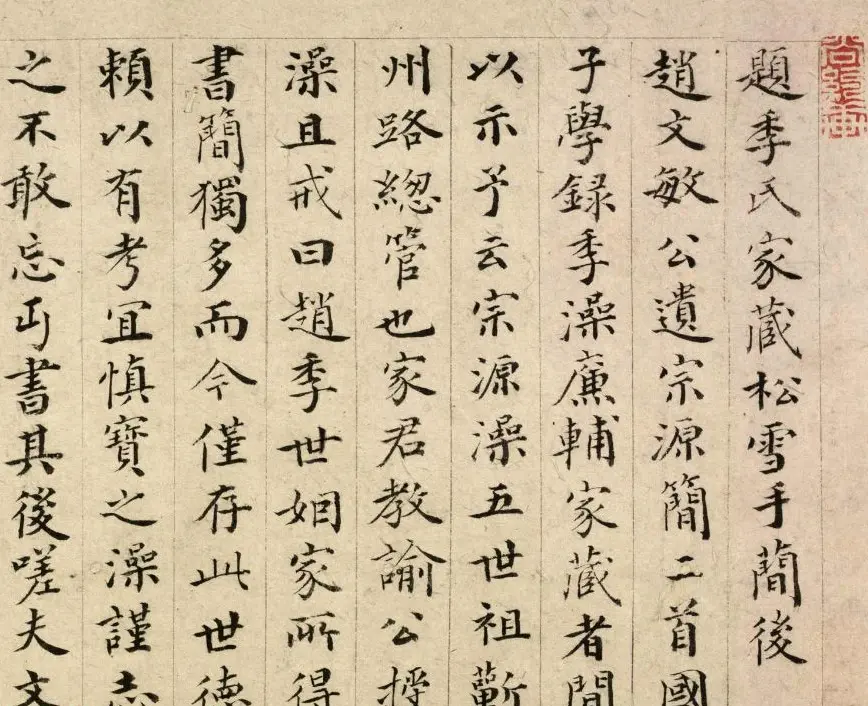 題季氏家藏松雪手蕑後
趙文敏公遺宗源簡二首國
子學録季澡廉輔家藏者間
以示予云宗源澡五世祖蘄
州路緫管也家君教諭公授
澡且戒曰趙季世姻家所得
書簡獨多而今僅存此世德
頼以有考宜慎寶之澡謹志
之不敢忘丐書其後嗟夫文